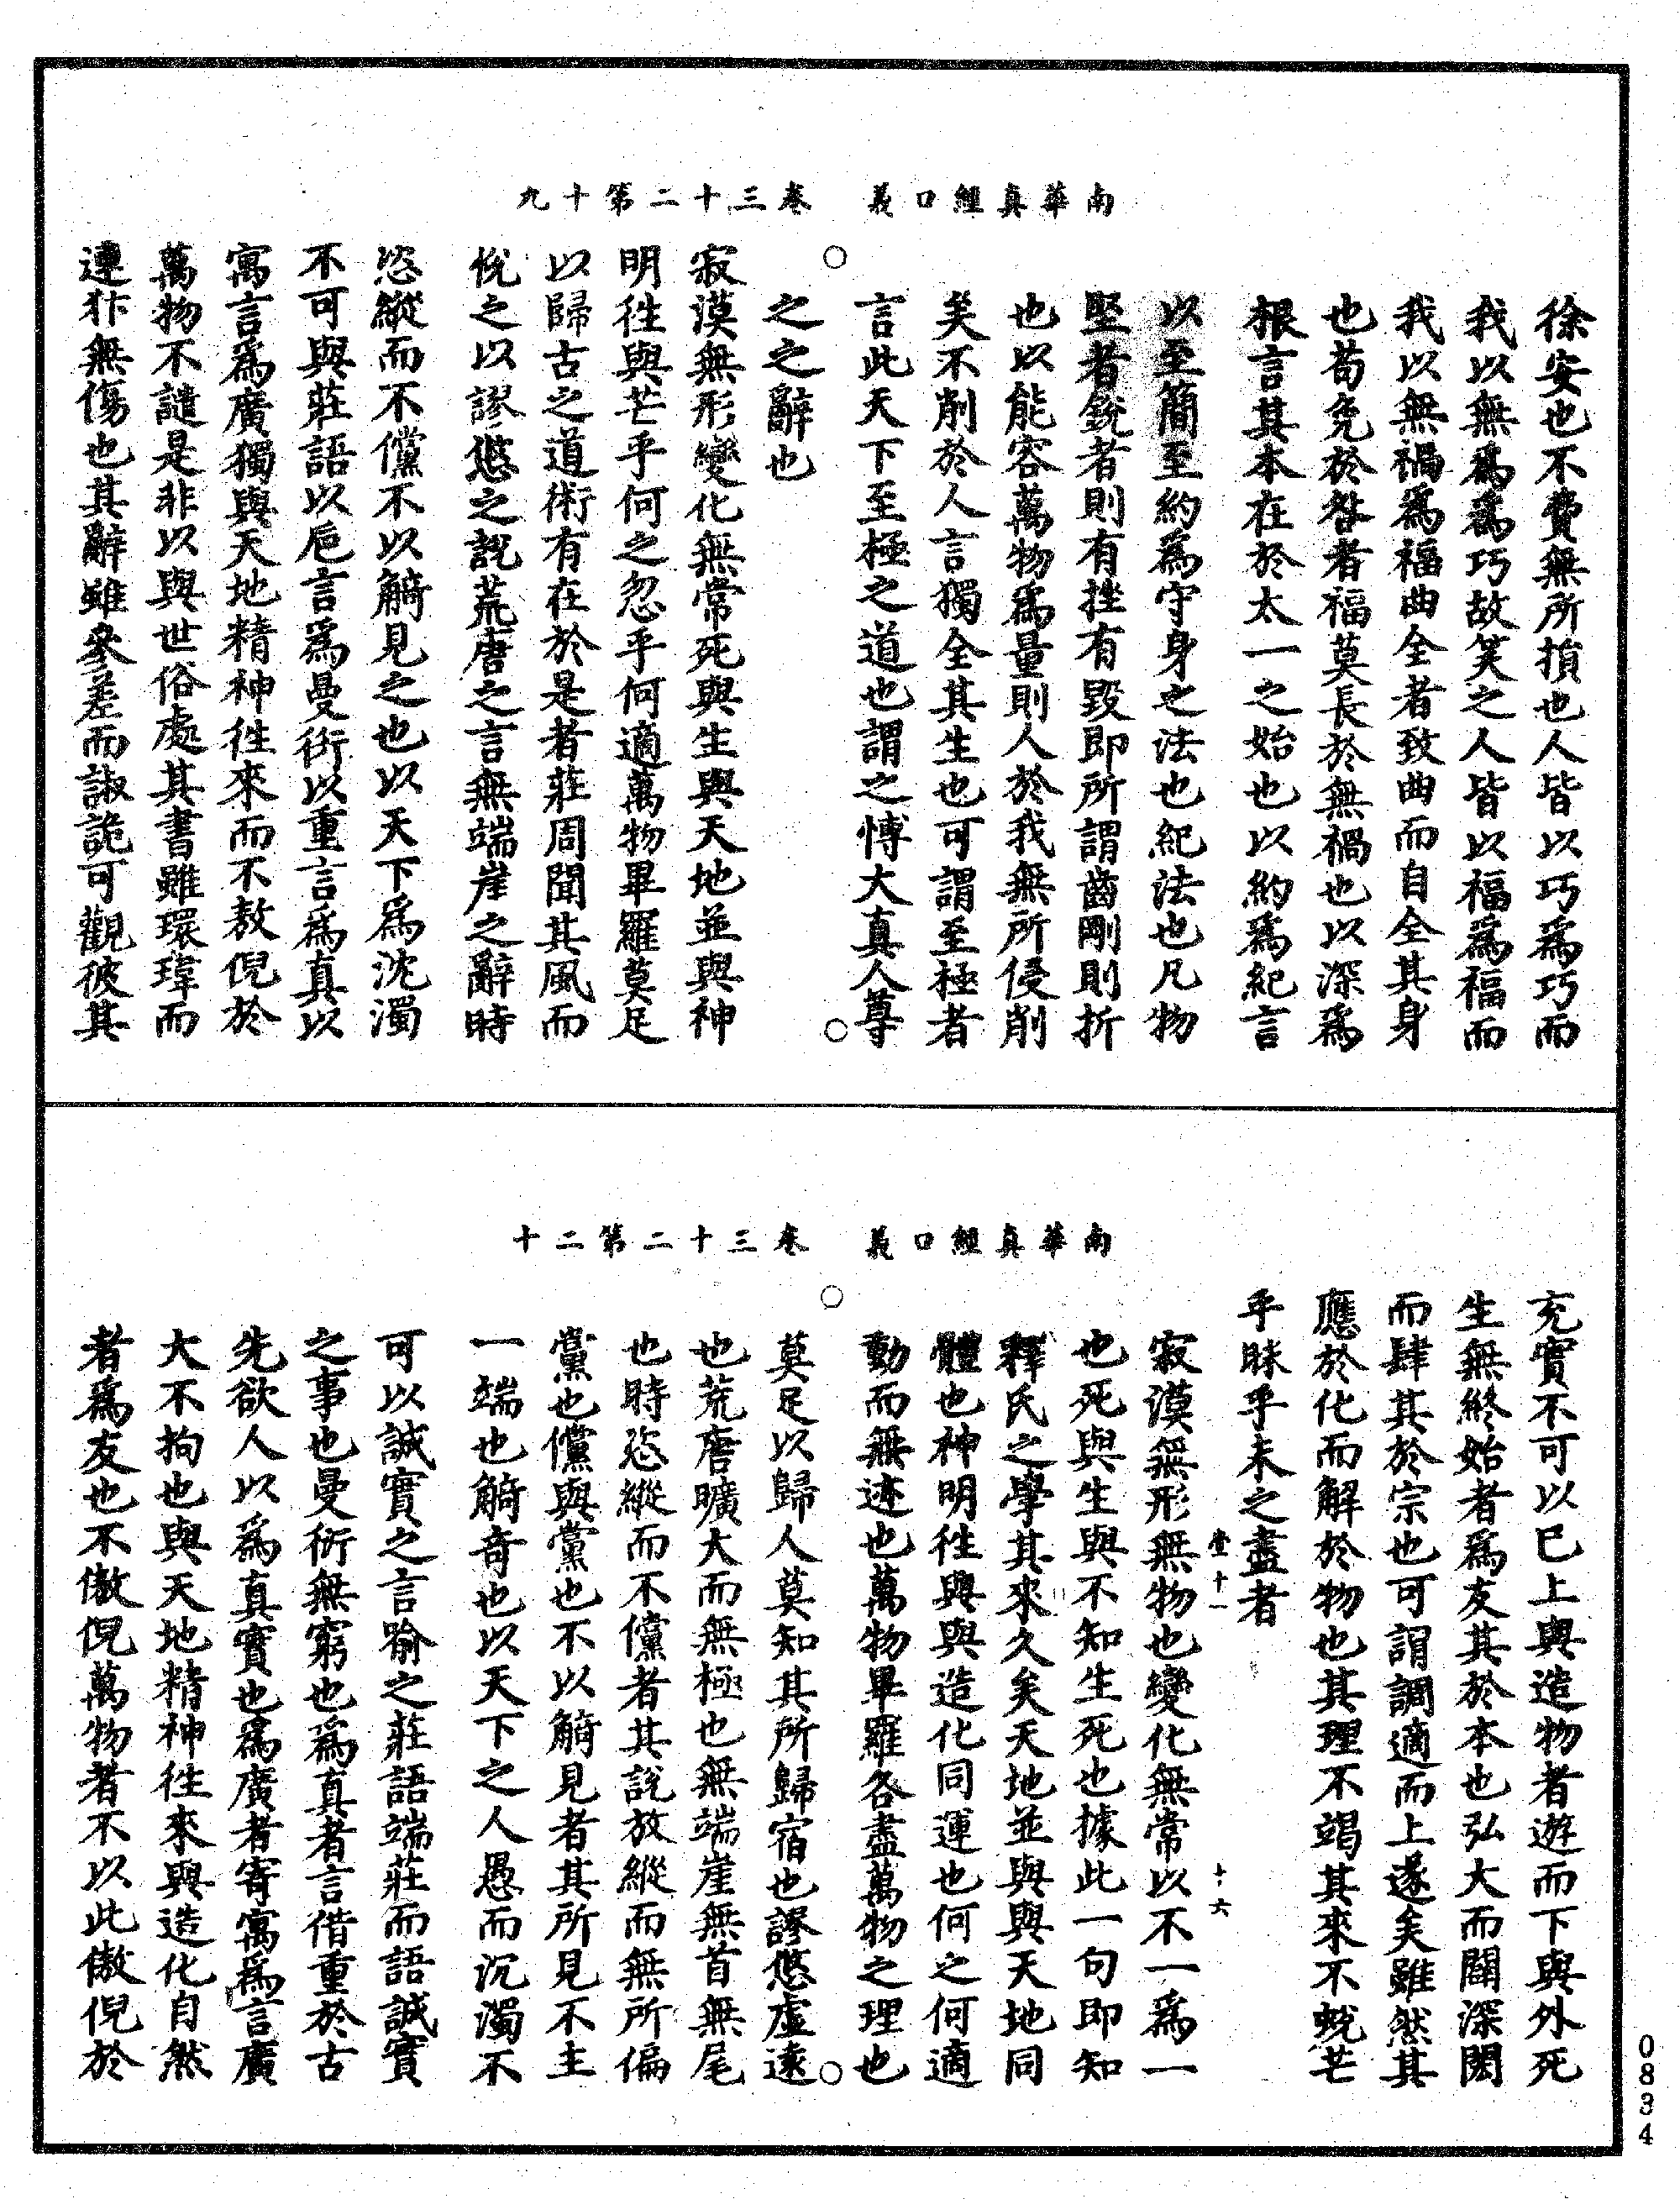 南華真經口義　卷三十二第十九
徐安也不費無所損也人皆以巧爲巧而
我以無爲爲巧故笑之人皆以福爲福而
我以無禍爲福曲全者致曲而自全其身
也苟免於咎者福莫長於無禍也以深爲
根言其本在於太一之始也以約爲紀言
以至簡至約為守身之法也紀法也凡物
堅者銳者則有挫有毀即所謂齒剛則折
也以能容萬物爲量則人於我無所侵削
矣不削於人言獨全其生也可謂至極者
言此天下至極之道也謂之博大真人尊
之之辭也
寂漠無形變化無常死與生與天地並與神
明徃與芒乎何之忽乎何適萬物畢羅莫足
以歸古之道術有在於是者莊周聞其風而
悅之以謬悠之說荒唐之言無端崖之辭時
恣縱而不儻不以觭見之也以天下爲沈濁
不可與莊語以巵言爲曼衍以重言爲真以
寓言爲廣獨與天地精神徃來而不敖倪於
萬物不譴是非以與世俗處其書雖環瑋而
連犿無傷也其辭雖參差而諔詭可觀彼其
南華真經口義　卷三十二第二十
充實不可以已上與造物者遊而下與外死
生無終始者爲友其於本也弘大而闢深閎
而肆其於宗也可謂調適而上遂矣雖然其
應於化而解於物也其理不竭其來不蛻芒
乎昧乎未之盡者
寂漠無形無物也變化無常以不一爲一
也死與生與不知生死也據此一句即知
釋氏之學其來久矣天地並與與天地同
體也神明徃與與造化同運也何之何適
動而無迹也萬物畢羅各盡萬物之理也
莫足以歸人莫知其所歸宿也謬悠虛遠
也荒唐曠大而無極也無端崖無首無尾
也時恣縱而不儻者其說放縱而無所偏
黨也儻與黨也不以觭見者其所見不主
一端也觭奇也以天下之人愚而沉濁不
可以誠實之言喻之莊語端莊而語誠實
之事也曼衍無窮也爲真者言借重於古
先欲人以爲真實也爲廣者寄寓爲言廣
大不拘也與天地精神徃來與造化自然
者爲友也不傲倪萬物者不以此傲倪於
十六
0834